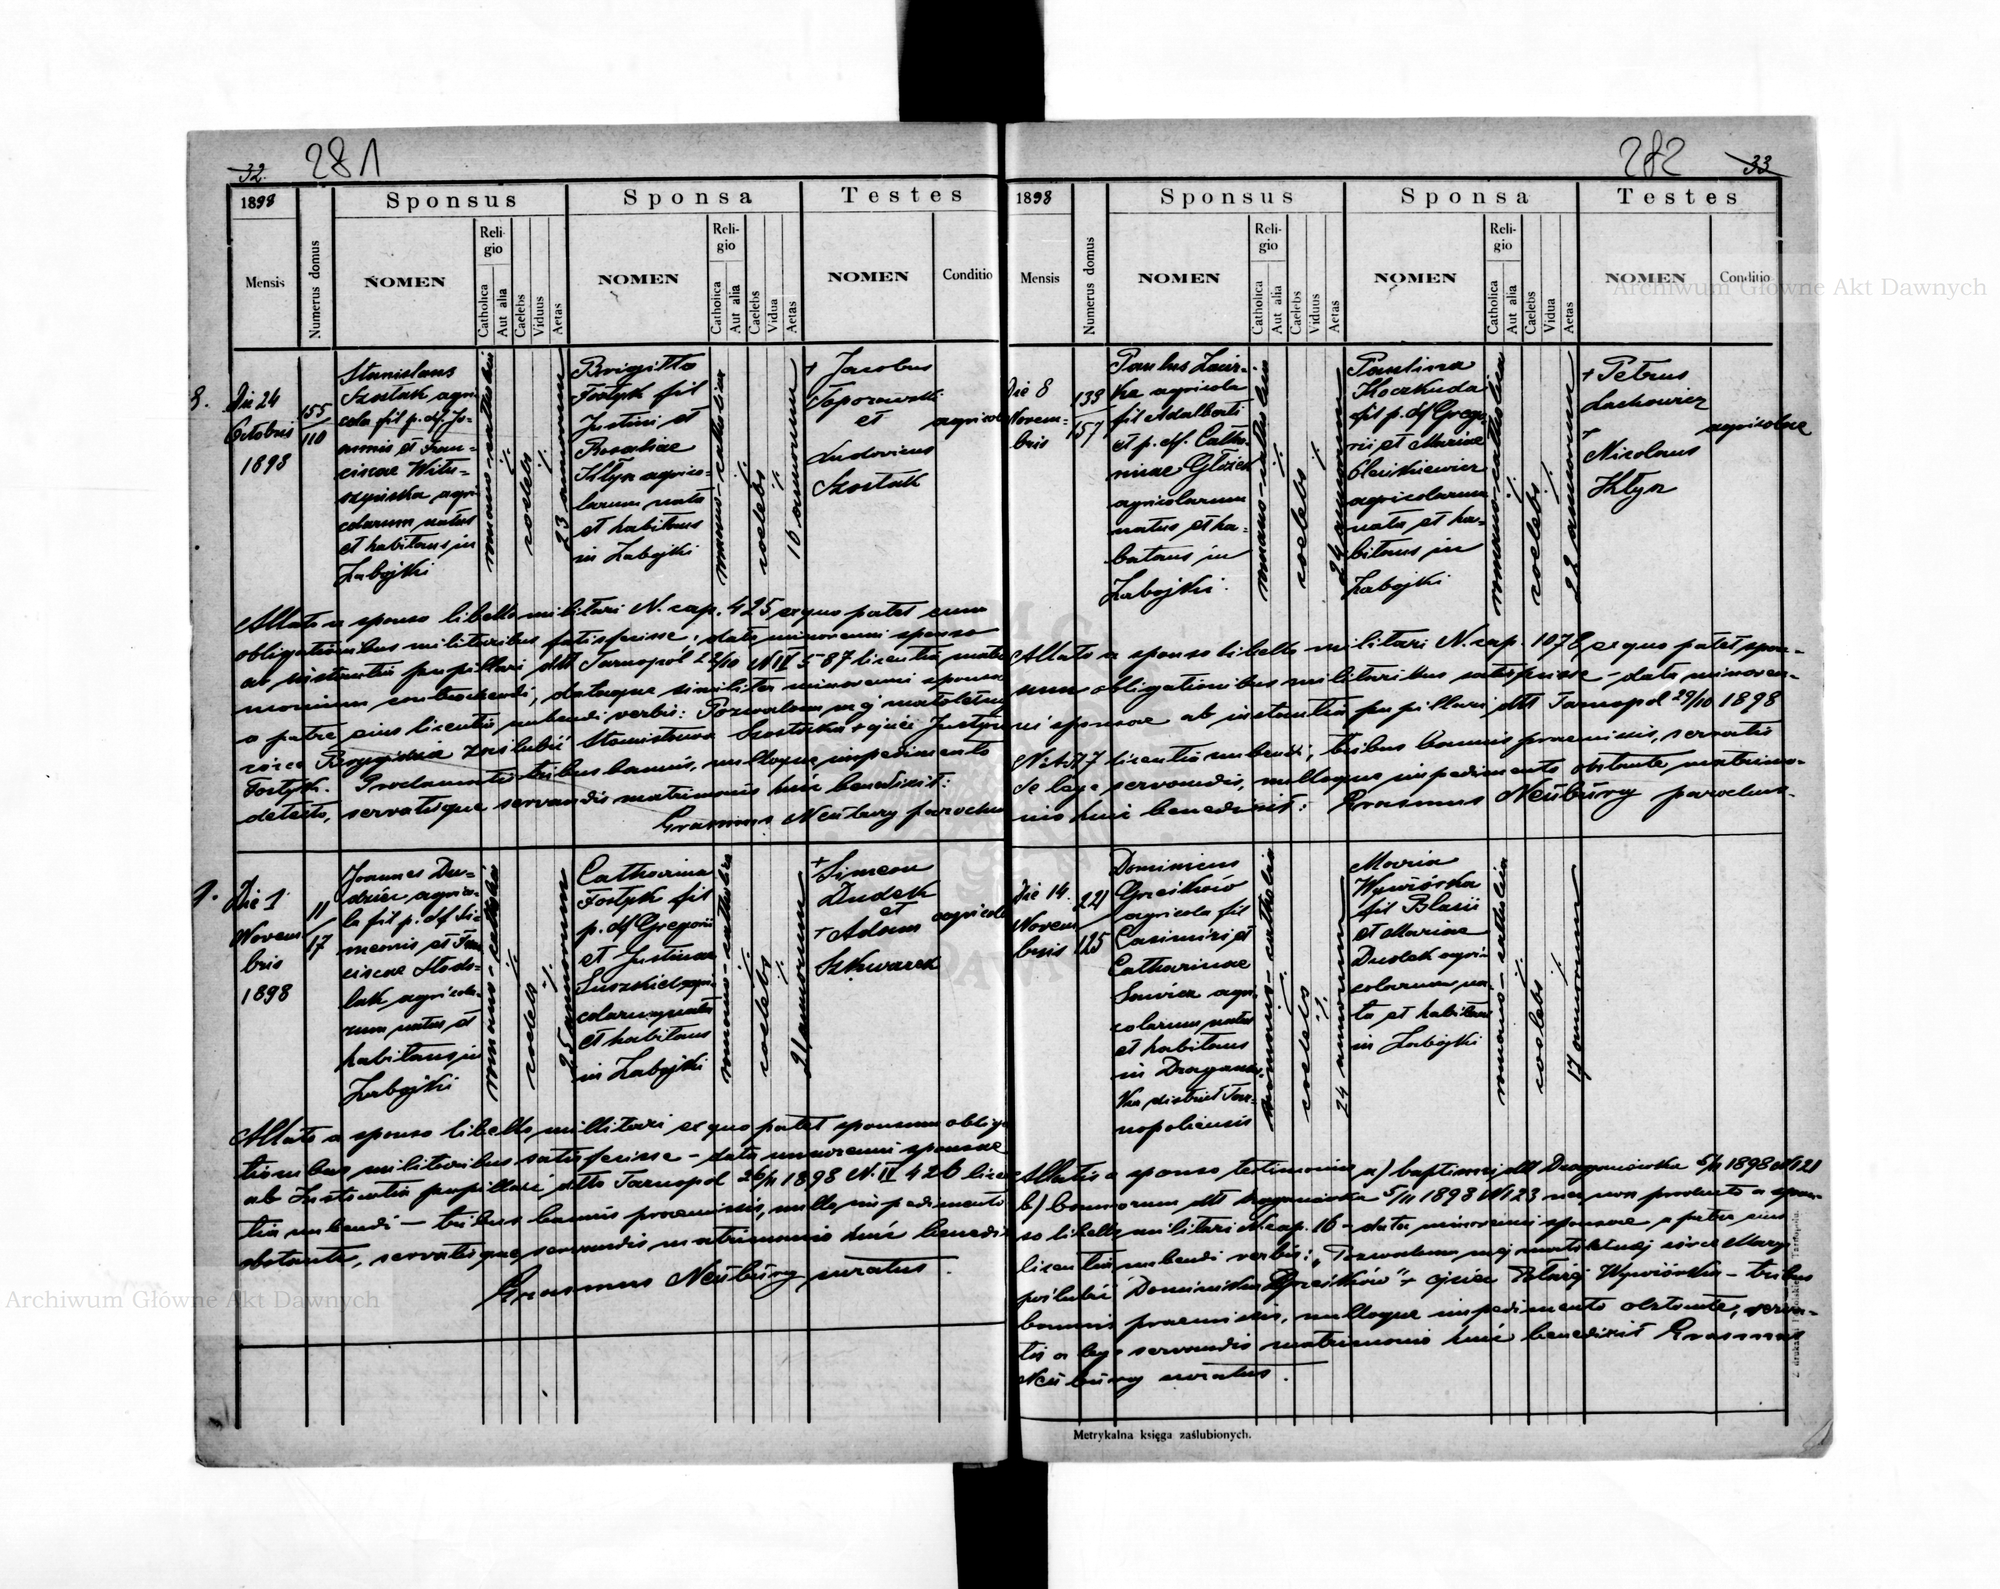 32. 281
1898
Sponsus
Sponsa
Testes
Mensis
Numerus domus
NOMEN
Religio
Catholica
Aut alia
Caelebs
Viduus
Aetas
NOMEN
Religio
Catholica
Aut alia
Caelebs
Vidua
Aetas
NOMEN
Conditio
8.
Die 24
Octobris
1898
155
110
Stanislaus
Szostak agri-
cola fil p. df Jo-
annis et Fran-
ciscae Witu-
szyńska agri
colarum natus
et habitans in
Zabojki
romano-catholica
coelebs
23 annorum
Brigitta
Fostyk fil
Justini et
Rosaliae
Kłyn agrico-
larum nata
et habitans
in Zabojki
romano-catholica
coelebs
16 annorum
+ Jacobus
Toporowski
et
Ludovicus
Szostak
agricolae
Allato a sponso libello militari N. cap. 425 ex quo patet eum
obligationibus militaribus satisfecisse; data minorenni sponso
ab instantia pupillari dtto Tarnopol 22/10 N IV 587 licentia matri
monium contrahendi, dataque similiter minorenni sponsae
a patre eius licentia nubendi verbis: Pozwalam mej małoletniej
córce Brygidzie zaślubić Stanisława Szostaka ojciec Justyn
Fostyk. Proclamatis tribus bannis, nulloque impedimento
detecto, servatisque servandis matrimonio huic benedixit:
Erasmus Neuburg parochus
9.
Die 1
Novem
bris
1898
11
17
Joannes Du-
dziec agrico-
la fil p. df Si-
meonis et Fran
ciscae Stodo-
lak agricola-
rum natus et
habitans in
Zabojki
romano-catholica
coelebs
25 annorum
Catharina
Fostyk fil
p. df Gregorii
et Justinae
Luszkiel agri-
colarum nata
et habitans
in Zabojki
romano-catholica
coelebs
21 annorum
+ Simeon
Dudek
et
+ Adam
Szkwarek
agricolae
Allato a sponso libello militari ex quo patet sponsum obliga
tionibus militaribus satisfecisse - data minorenni sponsae
ab Instantia pupillari dtto Tarnopol 1898 N. IV 426 licen
tia nubendi - tribus bannis praemissis, nullo impedimento
obstante, servatisque servandis matrimonio huic benedixit
Erasmus Neuburg curatus.
282 33
1898
Sponsus
Sponsa
Testes
Mensis
Numerus domus
NOMEN
Religio
Catholica
Aut alia
Caelebs
Viduus
Aetas
NOMEN
Religio
Catholica
Aut alia
Caelebs
Vidua
Aetas
NOMEN
Conditio
Die 8
Novem-
bris
133
157
Paulus
agricola
fil Adalberti
et p. df. Catha-
rinae
agricolarum
natus et ha-
bitans in
Zabojki.
romano-catholica
coelebs
24 annorum
Paulina
Koczkuda
fil p. df Grego
rii et Mariae
Olesikiewicz
agricolarum
nata et ha-
bitans in
Zabojki
romano-catholica
coelebs
22 annorum
+ Petrus
Lachowicz
+
Nicolaus
Kłyn
agricolae
Allato a sponso libello militari N. cap. 1078 ex quo patet spon-
sum obligationibus militaribus satisfecisse - data minoren-
ni sponsae ab instantia pupillari dtto Tarnopol 29/10 1898
licentia nubendi, tribus bannis praemissis, servatis
de lege servandis, nulloque impedimento obstante matrimo-
nio huic benedixit: Erasmus Neuburg parochus.
Die 14.
Novem
bris
221
125
Dominicus
Grzeików
agricola fil
Casimiri et
Catharinae
Sawicz agri-
colarum natus
et habitans
in Draganów-
ka district Tar-
nopoliensis
romano-catholica
coelebs
24 annorum
Maria
Wywiórka
fil Blasii
et Mariae
Dudek agri-
colarum na-
ta et habitans
in Zabojki
romano-catholica
coelebs
17 annorum
Allatis a sponso testimoniis a) baptismi dtt Draganówka 5/11 1898 N 121
b) bannorum dtt Draganówka 5/11 1898 N 123 nec non producto a spon-
so libello militari N. cap. 16 - data minorenni sponsae a patre eius
licentia nubendi verbis: „Pozwalam mej małoletniej córce Maryi
poślubić Dominika Grzeików" + ojciec Błażej Wywiórka - tribus
bannis praemissis, nulloque impedimento obstante, serva-
tis a lege servandis matrimonio huic benedixit Erasmus
Neuburg curatus.
Metrykalna księga zaślubionych.
Archiwum Główne Akt Dawnych
Archiwum Główne Akt Dawnych